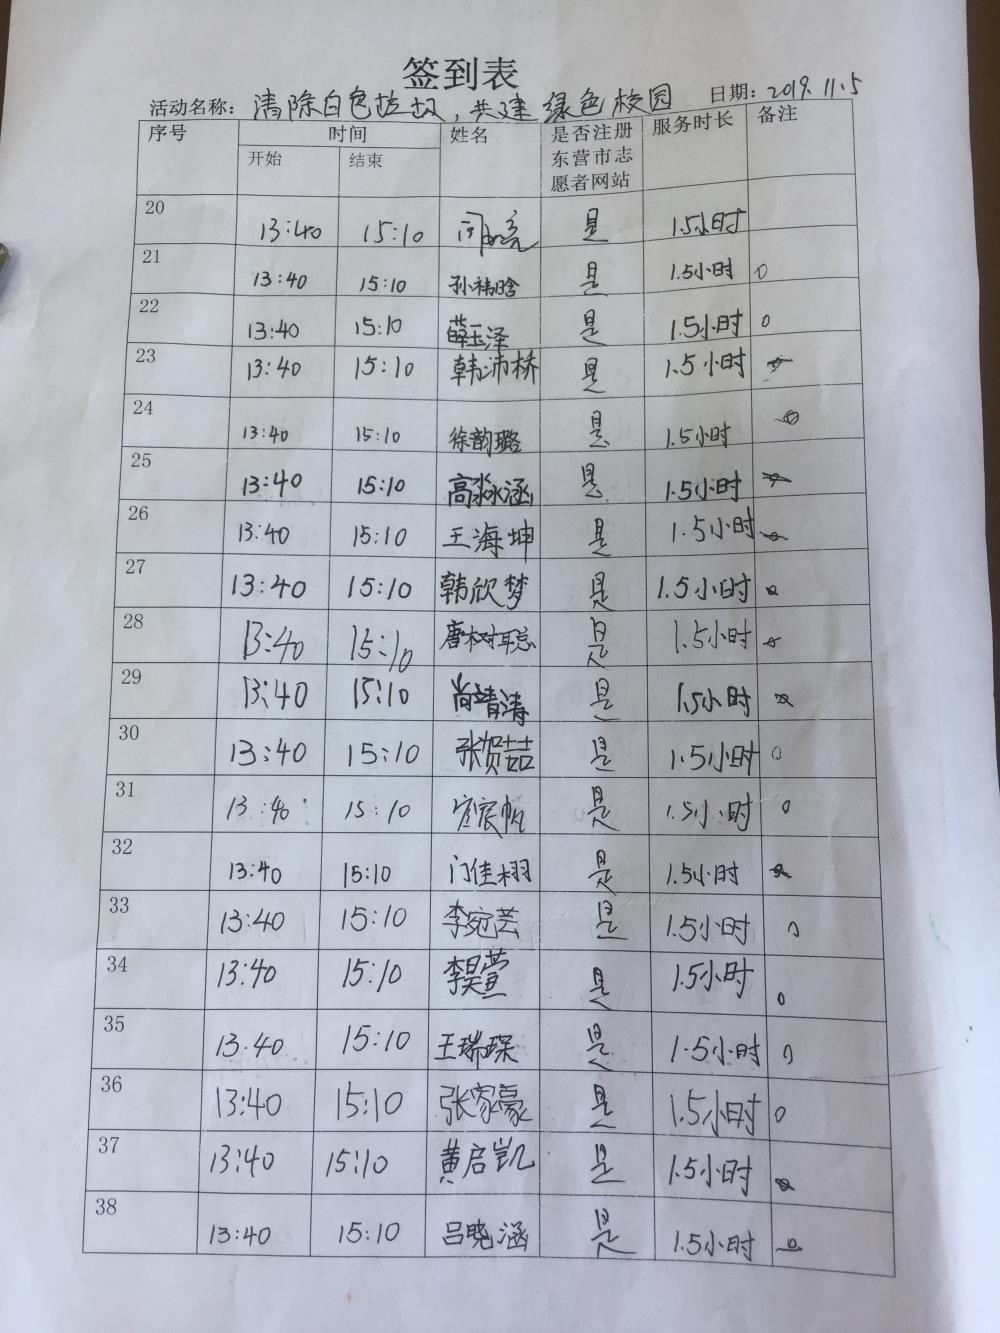 签到表
活动名称：清除白色垃圾，共建绿色校园 日期：2019.11.5
序号 时间 姓名 是否注册东营市志愿者网站 服务时长 备注
开始 结束
20 13:40 15:10 是 1.5小时
21 13:40 15:10 孙祎晗 是 1.5小时 0
22 13:40 15:10 薛玉泽 是 1.5小时 0
23 13:40 15:10 韩沛桥 是 1.5小时
24 13:40 15:10 徐韵璐 是 1.5小时
25 13:40 15:10 高淼涵 是 1.5小时
26 13:40 15:10 王海坤 是 1.5小时
27 13:40 15:10 韩欣梦 是 1.5小时
28 13:40 15:10 唐树聪 是 1.5小时
29 13:40 15:10 尚靖涛 是 1.5小时
30 13:40 15:10 张贺喆 是 1.5小时 0
31 13:40 15:10 是 1.5小时 0
32 13:40 15:10 门佳栩 是 1.5小时
33 13:40 15:10 李宛芸 是 1.5小时 0
34 13:40 15:10 李昊萱 是 1.5小时 0
35 13.40 15:10 王瑞琛 是 1.5小时 0
36 13:40 15:10 张家豪 是 1.5小时 0
37 13:40 15:10 黄启凯 是 1.5小时
38 13:40 15:10 吕晓涵 是 1.5小时